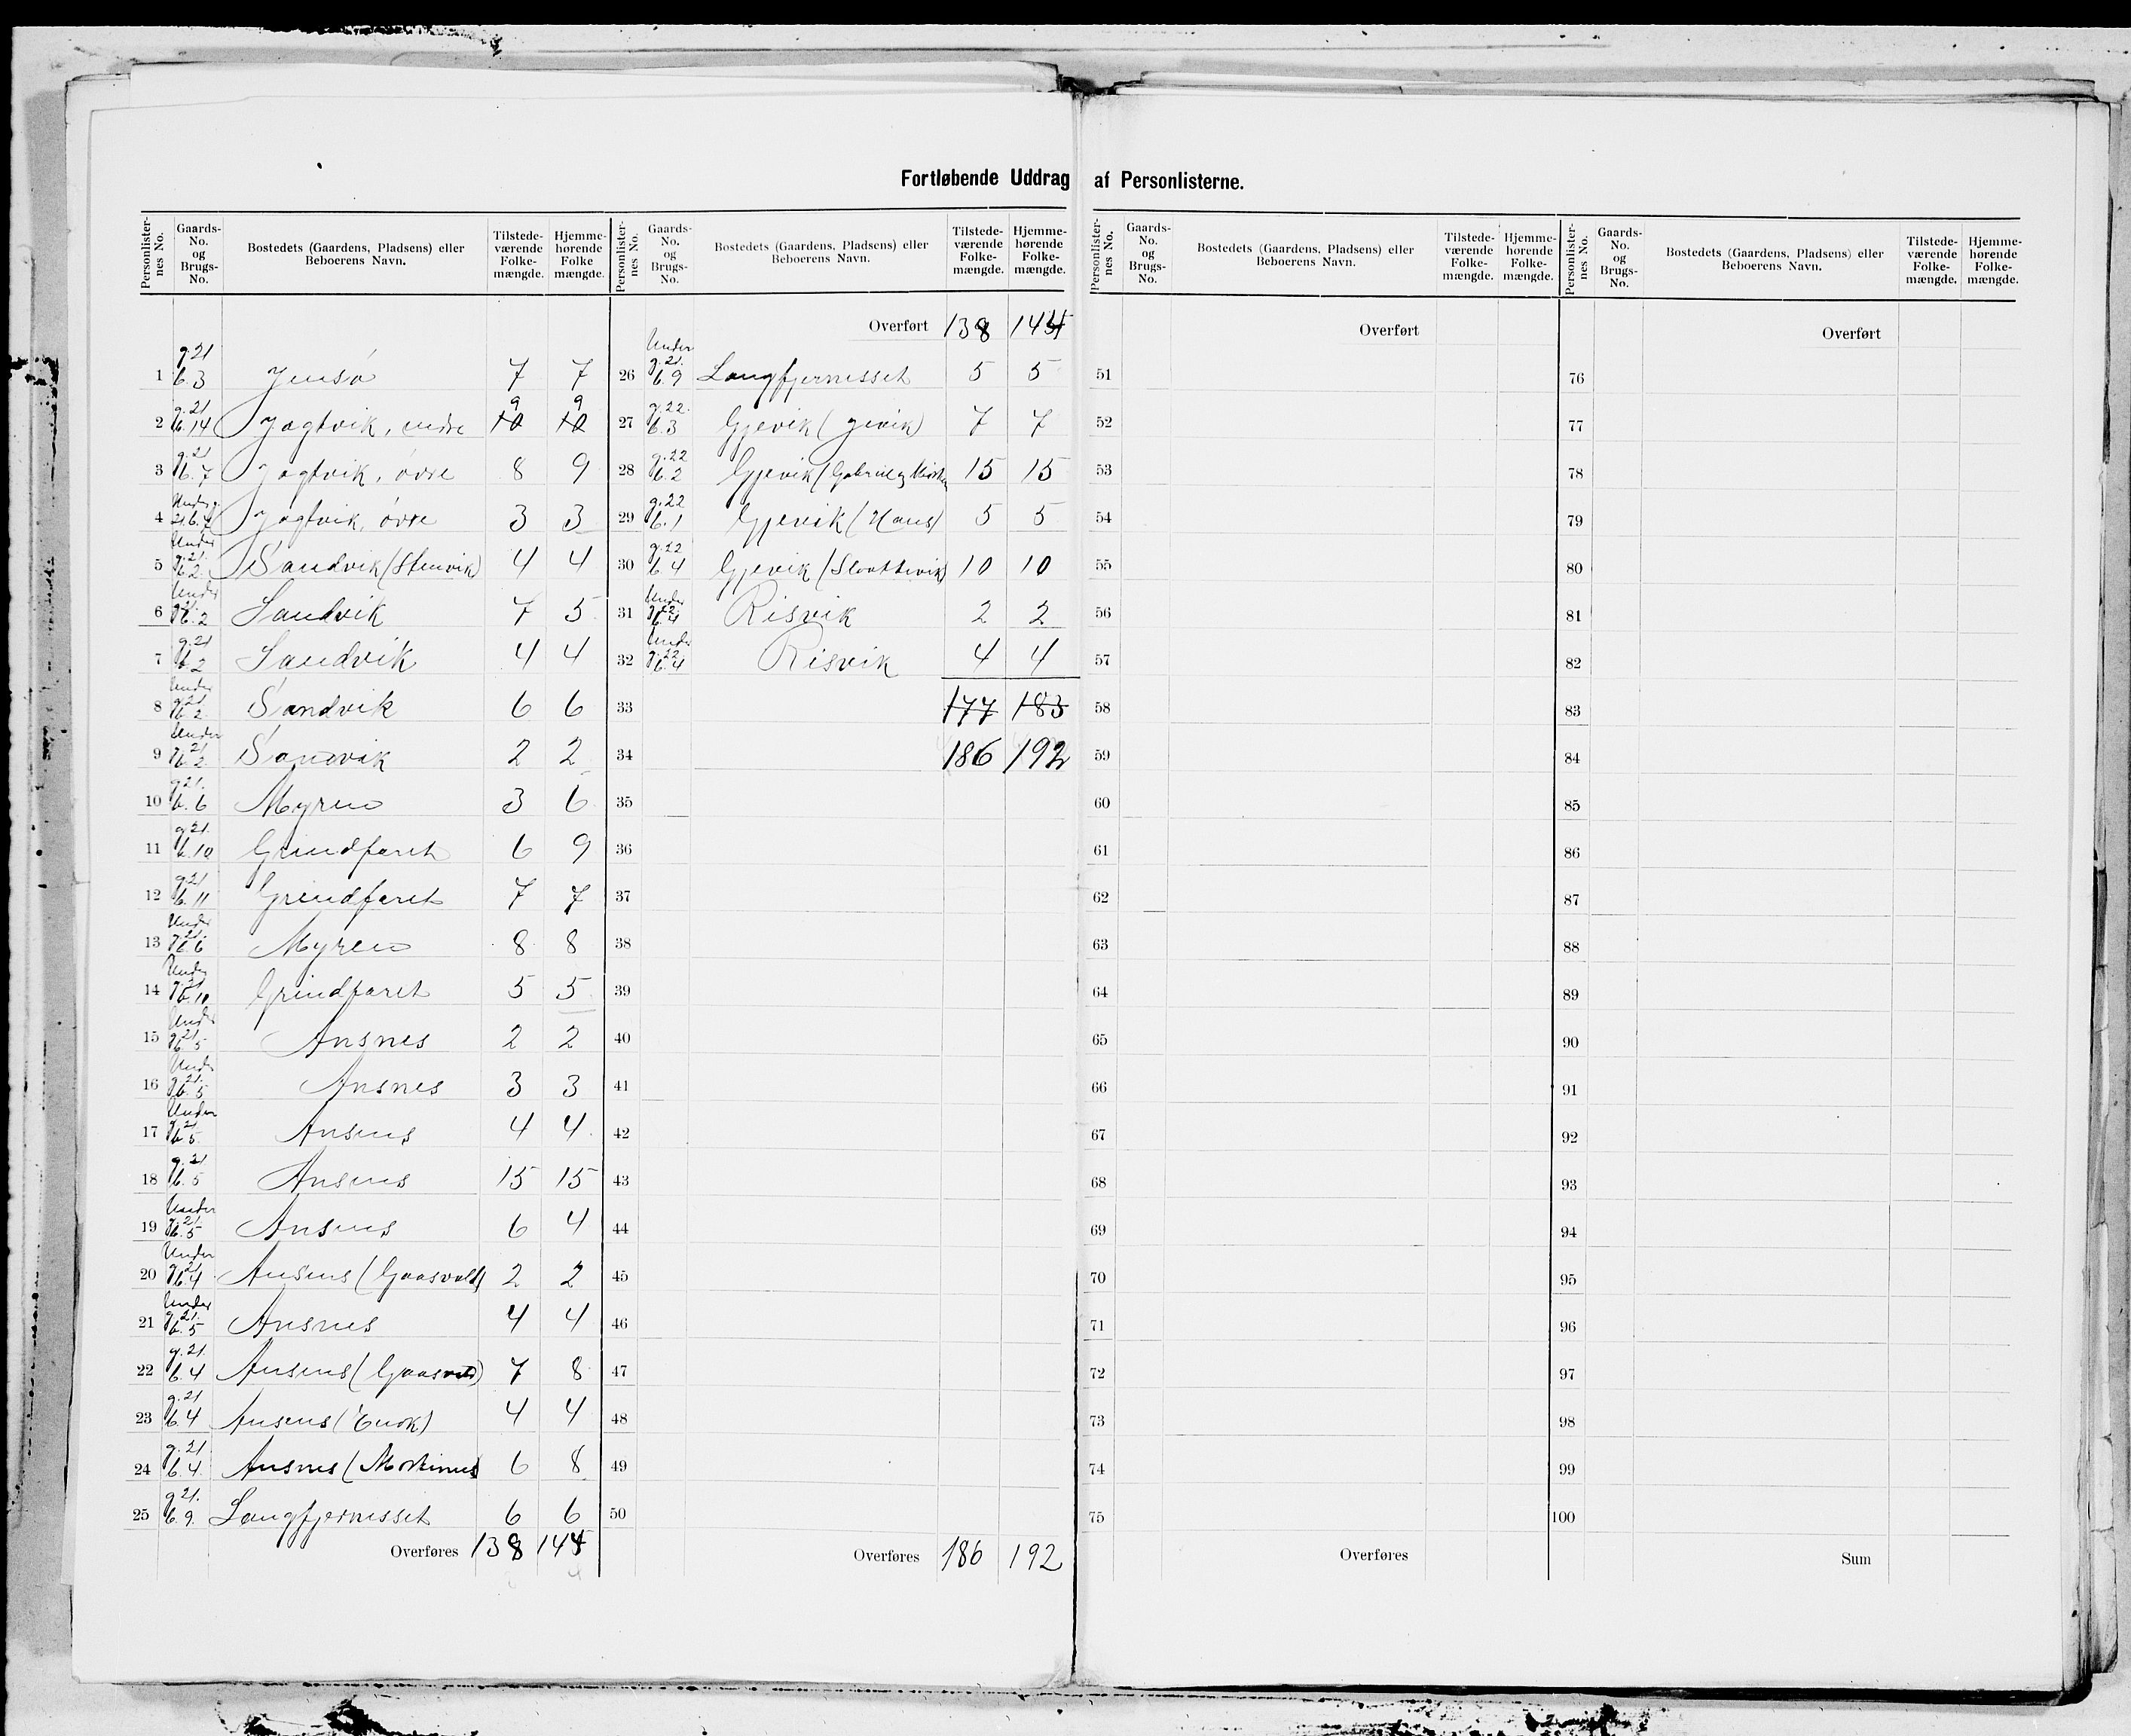 Fortløbende Uddrag af Personlisterne.
Personlister-nes No. | Gaards-No. og Brugs-No. | Bostedets (Gaardens, Pladsens) eller Beboerens Navn. | Tilstede-værende Folke-mængde. | Hjemme-hørende Folke mængde.
1 g. 21 b. 3 Jensø 7 7
2 g. 21 b. 14 Jøgtvik, nedre 10 9 10 9
3 g. 21 b. 7 Jøgtvik, øvre 8 9
4 Under g. 21 b. 7 Jøgtvik, øvre 3 3
5 Under g. 21. b. 2. Sandvik (Stenvik) 4 4
6 Under g. 21. b. 2 Sandvik 7 5
7 g. 21 b. 2 Sandvik 4 4
8 Under g. 21 b. 2. Sandvik 6 6
9 Under g. 21 b. 2. Sandvik 2 2
10 g. 21. b. 6 Myren 3 6
11 g. 21. b. 10 Grindfaret 6 9
12 g. 21 b. 11 Grindfaret 7 7
13 Under g. 21. b. 6 Myren 8 8
14 Under g. 21 b. 10 Grindfaret 5 5
15 Under g. 21. b. 5 Ansnes 2 2
16 Under g. 21. b. 5 Ansnes 3 3
17 Under g. 21 b. 5. Ansnes 4 4
18 g. 21 b. 5 Ansnes 15 15
19 Under g. 21. b. 5 Ansnes 6 4
20 Under g. 21. b. 4 Ansnes (Gaasvald) 2 2
21 Under g. 21. b. 5 Ansnes 4 4
22 g. 21. b. 4 Ansnes (Gaasvald) 7 8
23 g. 21 b. 4 Ansnes (Enok) 4 4
24 g. 21 b. 4. Ansnes (Martinus) 6 8
25 g. 21. b. 9. Langfjernesset 6 6
Overføres 138 144
Personlister-nes No. | Gaards-No. og Brugs-No. | Bostedets (Gaardens, Pladsens) eller Beboerens Navn. | Tilstede-værende Folke-mængde. | Hjemme-hørende Folke-mængde.
Overført 138 144
26 Under g. 21. b. 9 Langfjernesset 5 5
27 g. 22. b. 3 Gjevik (Jevik) 7 7
28 g. 22 b. 2 Gjevik (Gabriel og 15 15
29 g. 22 b. 1 Gjevik (Hans) 5 5
30 g. 22 b. 4 Gjevik (Slaattevik) 10 10
31 Under g. 22. b. 4 Risvik 2 2
32 Under g. 22 b. 4 Risvik 4 4
33 177 183
34 186 192
35
36
37
38
39
40
41
42
43
44
45
46
47
48
49
50
Overføres 186 192
Personlister-nes No. | Gaards-No. og Brugs-No. | Bostedets (Gaardens, Pladsens) eller Beboerens Navn. | Tilstede-værende Folke-mængde. | Hjemme-hørende Folke-mængde.
Overført
51
52
53
54
55
56
57
58
59
60
61
62
63
64
65
66
67
68
69
70
71
72
73
74
75
Overføres
Personlister-nes No. | Gaards-No. og Brugs-No. | Bostedets (Gaardens, Pladsens) eller Beboerens Navn. | Tilstede-værende Folke-mængde. | Hjemme-hørende Folke-mængde.
Overført
76
77
78
79
80
81
82
83
84
85
86
87
88
89
90
91
92
93
94
95
96
97
98
99
100
Sum